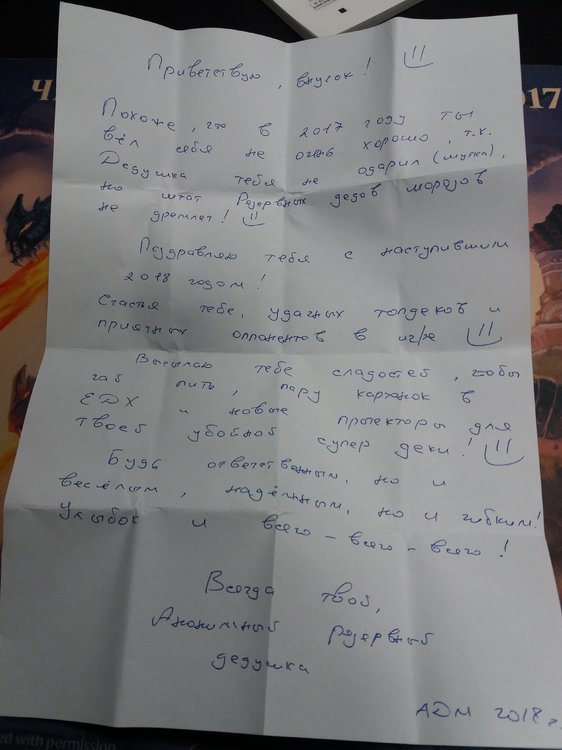 Ч
2017
Приветствую, внучок!
Похоже, что в 2017 году ты
вёл себя не очень хорошо, т.к.
Дедушка тебя не одарил (шутка),
но штат Резервных дедов морозов
не дремлет!
Поздравляю тебя с наступившим
2018 годом!
Счастья тебе, удачных топдеков и
приятных оппонентов в игре
Высылаю тебе сладостей, чтобы
чай пить, пару картонок в
EDX и новые протекторы для
твоей убойной супер деки!
Будь ответственным, но и
весёлым, надёжным, но и гибким!
Улыбок и всего - всего - всего!
Всегда твой,
Анонимный резервный
дедушка
АДМ 2018 г.
ed with permission